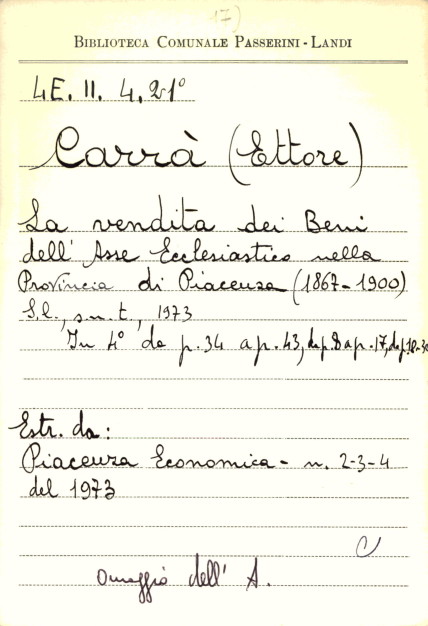 17)
BIBLIOTECA COMUNALE PASSERINI - LANDI
4E. II. 4, 21°
Carrà (Ettore)
La vendita dei Beni
dell' Asse Ecclesiastico nella
Provincia di Piacenza (1867-1900)
S.l., s.n.t., 1973
In 4° da p. 34 a p. 43, da p. 8 a p. 17, da p. 18-30
Estr. da:
Piacenza Economica - n. 2-3-4
del 1973
Omaggio dell' A.